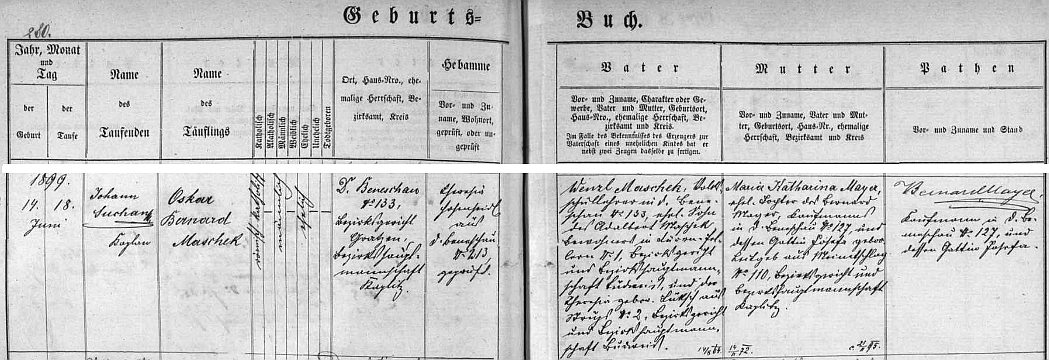 280.
Geburts=
Buch.
Jahr, Monat
und
Tag
der
Geburt
der
Taufe
Name
des
Taufenden
Name
des
Täuflings
Katholisch
Akatholisch
Männlich
Weiblich
Ehelich
Unehelich
Todtgeboren
Ort, Haus-Nro., ehe-
malige Herrschaft, Be-
zirksamt, Kreis
Hebamme
Vor- und Zu-
name, Wohnort,
geprüft, oder un-
geprüft
Vater
Vor- und Zuname, Charakter oder Ge-
werbe, Vater und Mutter, Geburtsort,
Haus-Nro., ehemalige Herrschaft, Be-
zirksamt und Kreis.
Im Falle des Bekenntnisses des Erzeugers zur
Vaterschaft eines unehelichen Kindes hat er
nebst zwei Zeugen dasselbe zu fertigen.
Mutter
Vor- und Zuname, Vater und Mut-
ter, Geburtsort, Haus-Nr., ehemalige
Herrschaft, Bezirksamt und Kreis
Pathen
Vor- und Zuname und Stand
1899.
14. 18.
Juni
Johann
Kaplan
Oskar
Bernard
Maschek
römisch katholisch
männlich
ehelich
D. Beneschau
No 133,
Bezirksgericht
Gratzen,
Bezirkshaupt-
mannschaft
Kaplitz.
Theresia
aus
D. Beneschau
No 213,
geprüft.
Wenzl Maschek, Volks-
schullehrer in D. Bene-
schau No 133, ehel. Sohn
des Adalbert Maschek
No 1, Bezirksgericht
und Bezirkshauptmann-
schaft Budweis, und der
Theresia gebor. aus
No 2, Bezirksgericht
und Bezirkshauptmann-
schaft Budweis.
Maria Katharina Mayer,
ehel. Tochter des Bernard
Mayer, Kaufmanns
in D. Beneschau No 127, und
dessen Gattin Josefa gebor.
Leitgeb aus Meinetschlag
No 110, Bezirksgericht und
Bezirkshauptmannschaft
Kaplitz.
Bernard Mayer,
Kaufmann in D. Be-
neschau No 127, und
dessen Gattin Josefa.